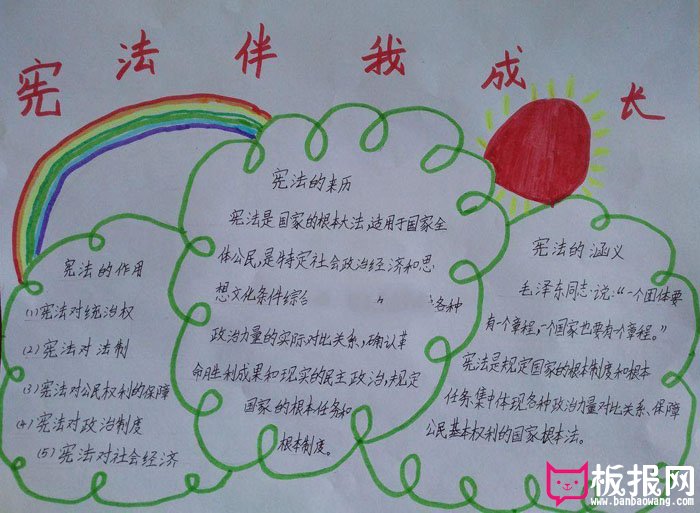 宪法伴我成长
宪法的来历
宪法是国家的根本大法,适用于国家全
体公民,是特定社会政治经济和思
想文化条件综合
各种
政治力量的实际对比关系,确认革
命胜利成果和现实的民主政治,规定
国家的根本任务和
根本制度。
宪法的作用
(1)宪法对统治权
(2)宪法对法制
(3)宪法对公民权利的保障
(4)宪法对政治制度
(5)宪法对社会经济
宪法的涵义
毛泽东同志说:“一个团体要
有一个章程,一个国家也要有个章程。”
宪法是规定国家的根本制度和根本
任务.集中体现各种政治力量对比关系、保障
公民基本权利的国家根本法。
板报网
www.banbaowang.com